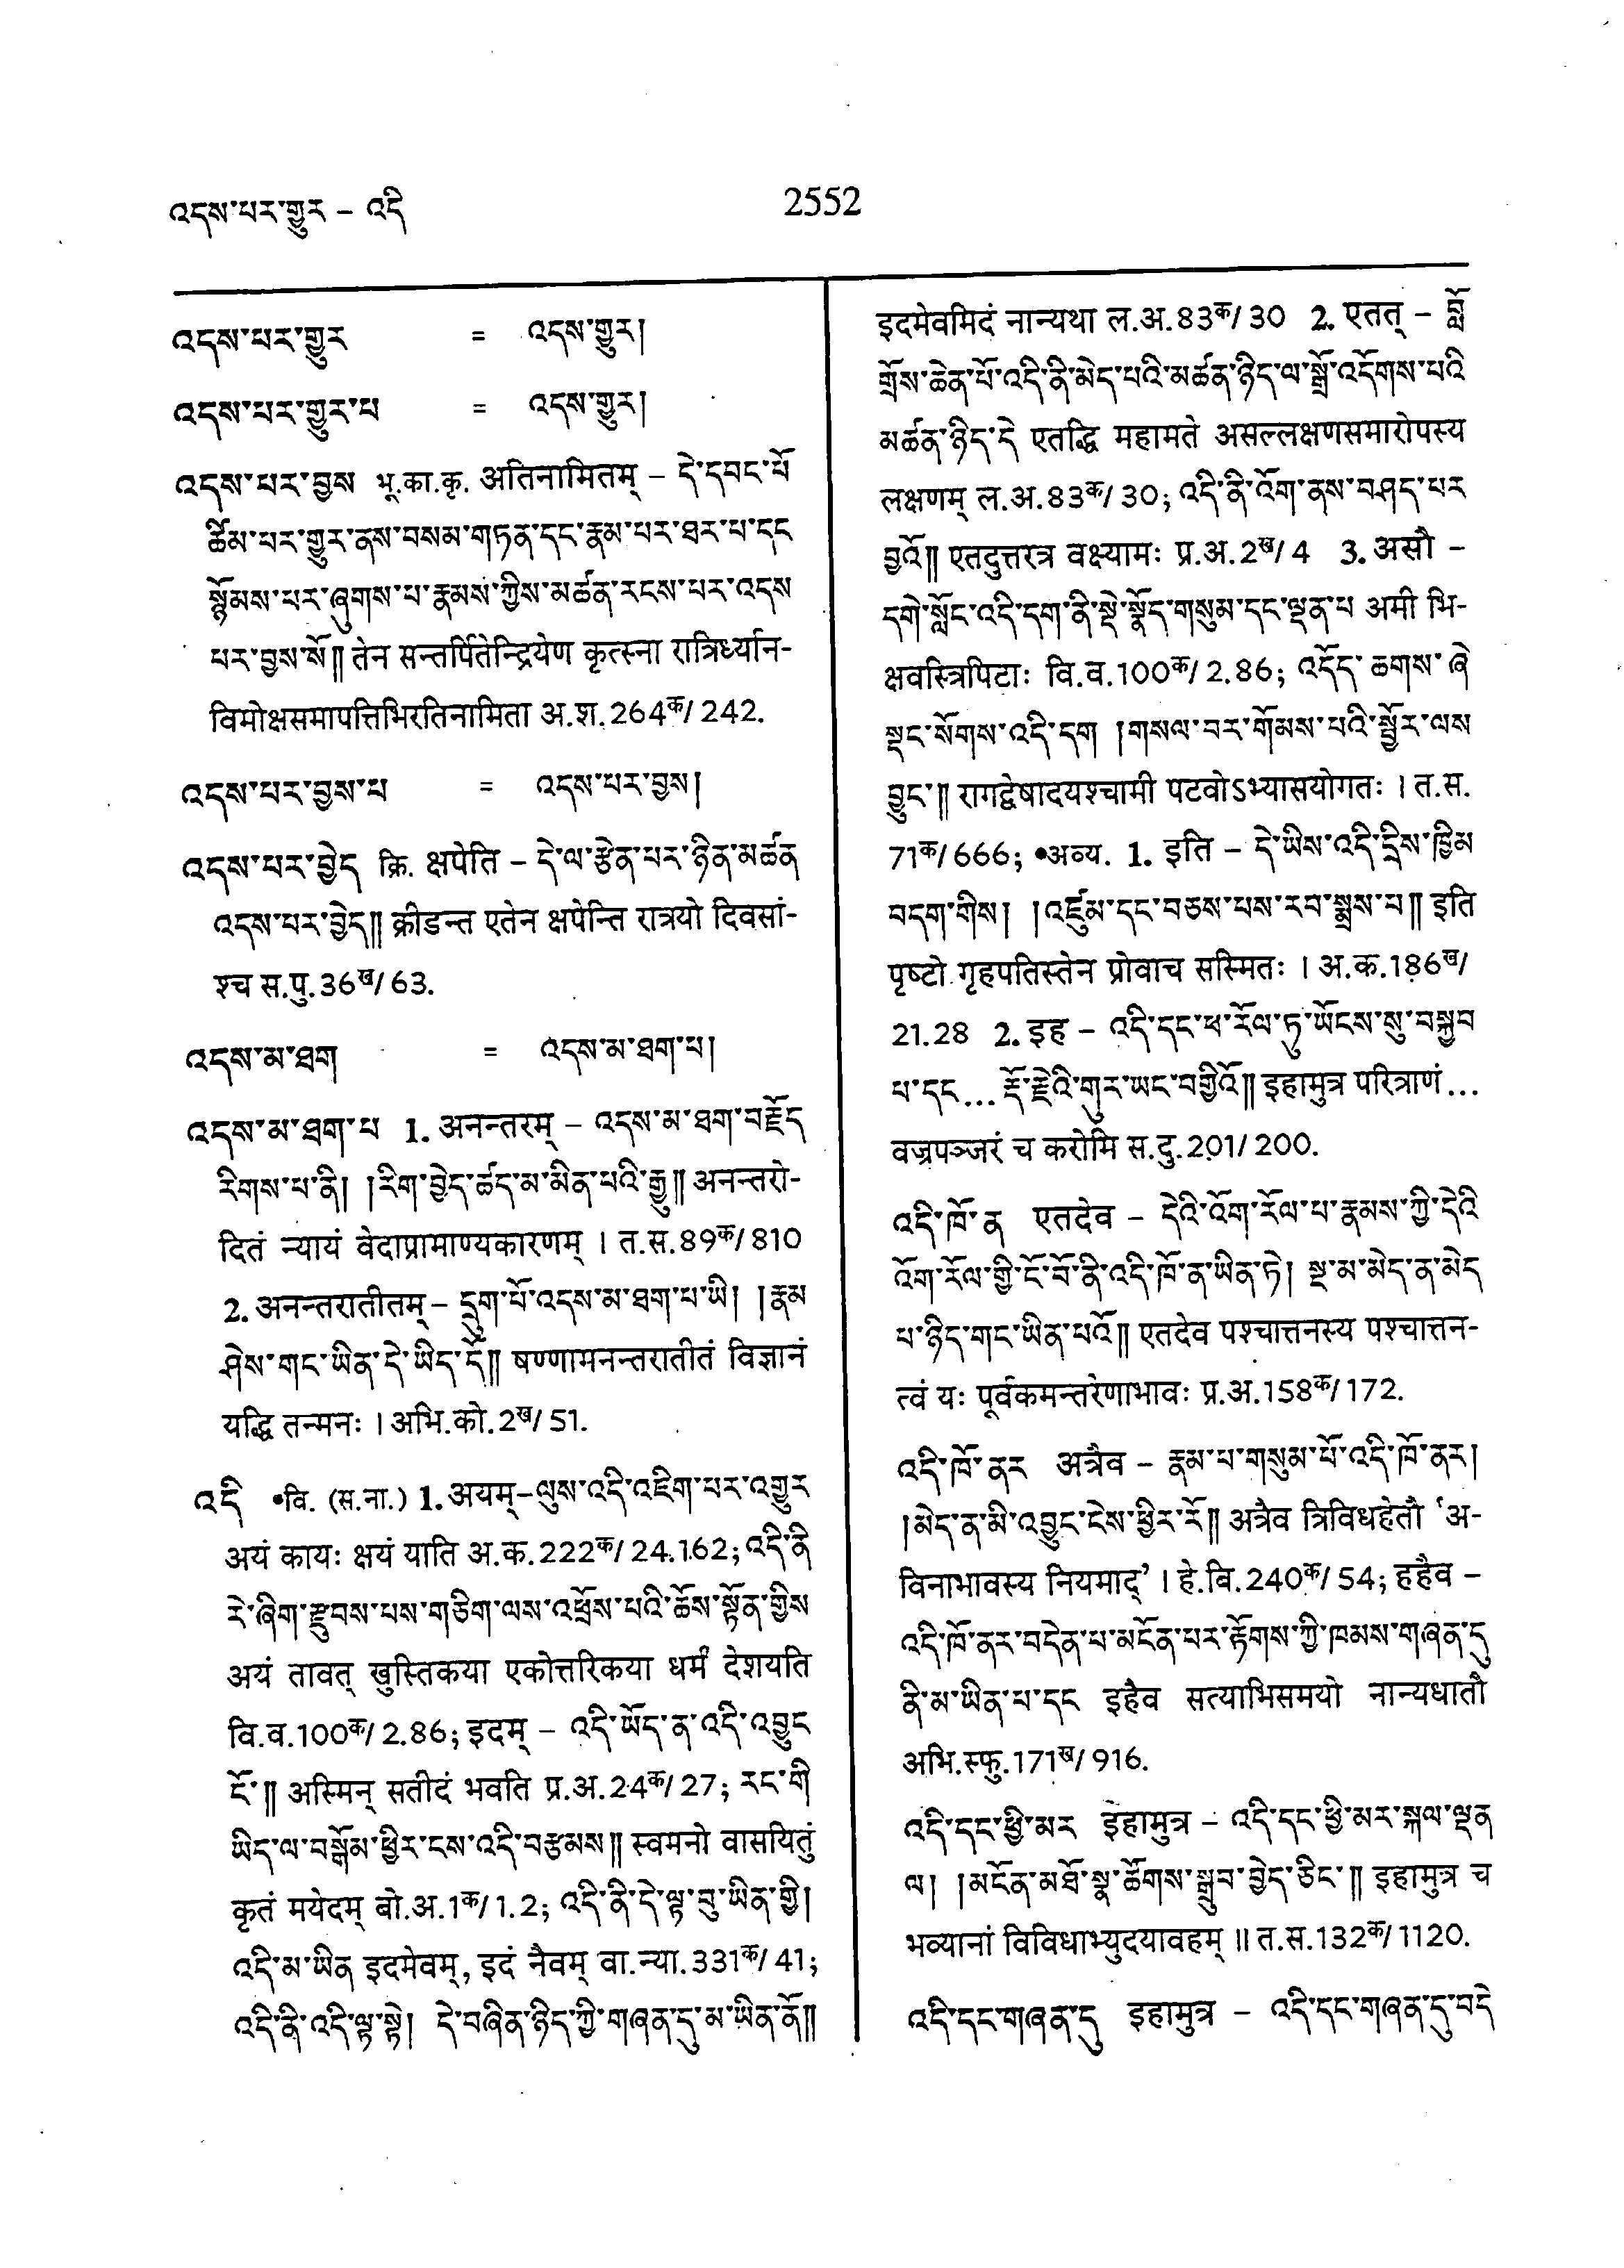 འདས་པར་གྱུར – འདི
2552
འདས་པར་གྱུར = འདས་གྱུར།
འདས་པར་གྱུར་པ = འདས་གྱུར།
འདས་པར་བྱས भू.का.कृ. अतिनामितम् – དེ་དབང་པོ
ཚིམ་པར་གྱུར་ནས་བསམ་གཏན་དང་རྣམ་པར་ཐར་པ་དང
སྙོམས་པར་ཞུགས་པ་རྣམས་ཀྱིས་མཚན་རངས་པར་འདས
པར་བྱས་སོ༎ तेन सन्तर्पितेन्द्रियेण कृत्स्ना रात्रिर्ध्यान-
विमोक्षसमापत्तिभिरतिनामिता अ.श.264क/242.
འདས་པར་བྱས་པ = འདས་པར་བྱས།
འདས་པར་བྱེད क्रि. क्षपेति – དེ་ལ་རྩེན་པར་ཉིན་མཚན
འདས་པར་བྱེད༎ क्रीडन्त एतेन क्षपेन्ति रात्रयो दिवसां-
श्च स.पु.36ख/63.
འདས་མ་ཐག = འདས་མ་ཐག་པ།
འདས་མ་ཐག་པ 1. अनन्तरम् – འདས་མ་ཐག་བརྗོད
རིགས་པ་ནི། །རིག་བྱེད་ཚད་མ་མིན་པའི་རྒྱུ༎ अनन्तरो-
दितं न्यायं वेदाप्रामाण्यकारणम् । त.स.89क/810
2. अनन्तरातीतम् – དྲུག་པོ་འདས་མ་ཐག་པ་ཡི། །རྣམ
ཤེས་གང་ཡིན་དེ་ཡིད་དོ༎ षण्णामनन्तरातीतं विज्ञानं
यद्धि तन्मनः । अभि.को.2ख/51.
འདི •वि. (स.ना.) 1. अयम्–ལུས་འདི་འཇིག་པར་འགྱུར
अयं कायः क्षयं याति अ.क.222क/24.162; འདི་ནི
རེ་ཞིག་རྫུབས་པས་གཅིག་ལས་འཕྲོས་པའི་ཆོས་སྟོན་གྱིས
अयं तावत् खुस्तिकया एकोत्तरिकया धर्मं देशयति
वि.व.100क/2.86; इदम् – འདི་ཡོད་ན་འདི་འབྱུང
ངོ་༎ अस्मिन् सतीदं भवति प्र.अ.24क/27; རང་གི
ཡིད་ལ་བསྒོམ་ཕྱིར་ངས་འདི་བརྩམས༎ स्वमनो वासयितुं
कृतं मयेदम् बो.अ.1क/1.2; འདི་ནི་དེ་ལྟ་བུ་ཡིན་གྱི།
འདི་མ་ཡིན इदमेवम्, इदं नैवम् वा.न्या.331क/41;
འདི་ནི་འདི་ལྟ་སྟེ། དེ་བཞིན་ཉིད་ཀྱི་གཞན་དུ་མ་ཡིན་ནོ༎
इदमेवमिदं नान्यथा ल.अ.83क/30 2. एतत् – བློ
གྲོས་ཆེན་པོ་འདི་ནི་མེད་པའི་མཚན་ཉིད་ལ་སྒྲོ་འདོགས་པའི
མཚན་ཉིད་དེ एतद्धि महामते असल्लक्षणसमारोपस्य
लक्षणम् ल.अ.83क/30; འདི་ནི་འོག་ནས་བཤད་པར
བྱའོ༎ एतदुत्तरत्र वक्ष्यामः प्र.अ.2ख/4 3. असौ –
དགེ་སློང་འདི་དག་ནི་སྡེ་སྣོད་གསུམ་དང་ལྡན་པ अमी भि-
क्षवस्त्रिपिटाः वि.व.100क/2.86; འདོད་ཆགས་ཞེ
སྡང་སོགས་འདི་དག །གསལ་བར་གོམས་པའི་སྦྱོར་ལས
བྱུང་༎ रागद्वेषादयश्चामी पटवोऽभ्यासयोगतः । त.स.
71क/666; •अव्य. 1. इति – དེ་ཡིས་འདི་དྲིས་ཁྱིམ
བདག་གིས། །འཛུམ་དང་བཅས་པས་རབ་སྨྲས་པ༎ इति
पृष्टो गृहपतिस्तेन प्रोवाच सस्मितः । अ.क.186ख/
21.28 2. इह – འདི་དང་ཕ་རོལ་ཏུ་ཡོངས་སུ་བསྐྱབ
པ་དང... རྡོ་རྗེའི་གུར་ཡང་བགྱིའོ༎ इहामुत्र परित्राणं...
वज्रपञ्जरं च करोमि स.दु.201/200.
འདི་ཁོ་ན एतदेव – དེའི་འོག་རོལ་པ་རྣམས་ཀྱི་དེའི
འོག་རོལ་གྱི་ངོ་བོ་ནི་འདི་ཁོ་ན་ཡིན་ཏེ། སྔ་མ་མེད་ན་མེད
པ་ཉིད་གང་ཡིན་པའོ༎ एतदेव पश्चात्तनस्य पश्चात्तन-
त्वं यः पूर्वकमन्तरेणाभावः प्र.अ.158क/172.
འདི་ཁོ་ནར अत्रैव – རྣམ་པ་གསུམ་པོ་འདི་ཁོ་ནར།
།མེད་ན་མི་འབྱུང་ངེས་ཕྱིར་རོ༎ अत्रैव त्रिविधहेतौ 'अ-
विनाभावस्य नियमाद्' । हे.बि.240क/54; हहैव –
འདི་ཁོ་ནར་བདེན་པ་མངོན་པར་རྟོགས་ཀྱི་ཁམས་གཞན་དུ
ནི་མ་ཡིན་པ་དང इहैव सत्याभिसमयो नान्यधातौ
अभि.स्फु.171ख/916.
འདི་དང་ཕྱི་མར इहामुत्र – འདི་དང་ཕྱི་མར་སྐལ་ལྡན
ལ། །མངོན་མཐོ་སྣ་ཚོགས་སྒྲུབ་བྱེད་ཅིང་༎ इहामुत्र च
भव्यानां विविधाभ्युदयावहम् ॥ त.स.132क/1120.
འདི་དང་གཞན་དུ इहामुत्र – འདི་དང་གཞན་དུ་བདེ